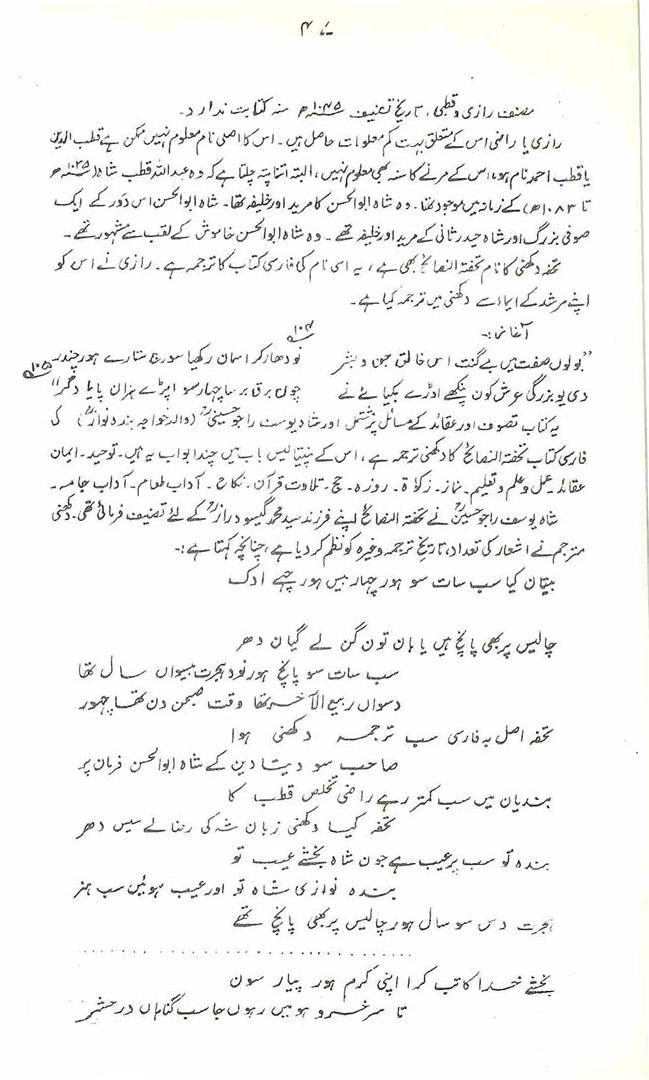 ۴۷
مصنف رازی و قطبی، تاریخ تصنیف ۱۰۴۵ھ سنہ کتابت ندارد۔
رازی یا راضی اس کے متعلق بہت کم معلومات حاصل ہیں۔ اس کا اصلی نام معلوم نہیں ممکن ہے قطب الدین
یا قطب احمد نام ہو، اس کے مرنے کا سنہ بھی معلوم نہیں، البتہ اتنا پتہ چلتا ہے کہ وہ عبداللہ قطب شاہ (۱۰۳۵ھ
تا ۱۰۸۳ھ) کے زمانہ میں موجود تھا۔ وہ شاہ ابوالحسن کا مرید اور خلیفہ تھا۔ شاہ ابوالحسن اس دَور کے ایک
صوفی بزرگ اور شاہ حیدر ثانی کے مرید اور خلیفہ تھے۔ وہ شاہ ابوالحسن خاموش کے لقب سے مشہور تھے۔
تحفہ دکھنی کا نام تحفۃ النصائح بھی ہے، یہ اسی نام کی فارسی کتاب کا ترجمہ ہے۔ رازی نے اس کو
اپنے مرشد کے ایماء سے دکھنی میں ترجمہ کیا ہے۔
آغاز:۔
"بولوں صفت میں بے گنت اس خالق جن و بشر نو دھار کر اسمان رکھیا سورج ستارے ہور چندر
دی یو بزرگی عرش کون پنکھے اوڑے یکپائے نے جون برق برسا چہار سو اپڑے ہزان پایا دگر"
یہ کتاب تصوف اور عقائد کے مسائل پر مشتمل اور شاہ یوسف راجو حسینیؒ (والد خواجہ بندہ نوازؒ) کی
فارسی کتاب تحفۃ النصائح کا دکھنی ترجمہ ہے، اس کے پینتالیس باب میں چند ابواب یہ ہیں۔ توحید۔ ایمان
عقائد۔ عمل و علم و تعلیم۔ نماز۔ زکوٰۃ۔ روزہ۔ حج۔ تلاوت قرآن۔ نکاح۔ آداب طعام۔ آداب جامہ۔
شاہ یوسف راجو حسینیؒ نے تحفۃ النصائح اپنے فرزند سید محمد گیسو درازؒ کے لئے تصنیف فرمائی تھی۔ دکھنی
مترجم نے اشعار کی تعداد، تاریخ ترجمہ وغیرہ کو نظم کر دیا ہے، چنانچہ کہتا ہے:۔
بیتان کیا سب سات سو ہور چہار بیس ہور چھے ادک
چالیس پر بھی پانچ ہیں یا بان تون گن لے گیان دھر
سب سات سو پانچ ہور نود ہجرت بیسواں سال تھا
دسواں ربیع الآخر تھا وقت صبحن دن تھا چہور
تحفہ اصل بہ فارسی سب ترجمہ دکھنی ہوا
صاحب سو دیتا دین کے شاہ ابوالحسن فرمان پر
بندیان میں سب کمتر رہے راضی تخلص قطب کا
تحفہ کیا دکھنی زبان شہ کی رضا لے سیس دھر
بندہ تو سب پر عیب ہے جون شاہ بخشے عیب تو
بندہ نوازی شاہ تو اور عیب ہوئیں سب ہنر
ہجرت دس سو سال ہور چالیس پر بھی پانچ تھے
بخشے خدا کاتب کرا اپنی کرم ہور پیار سون
تا سرخرو ہو میں رہوں جا سب گناہاں در حشر
۱۰۴
۱۰۵